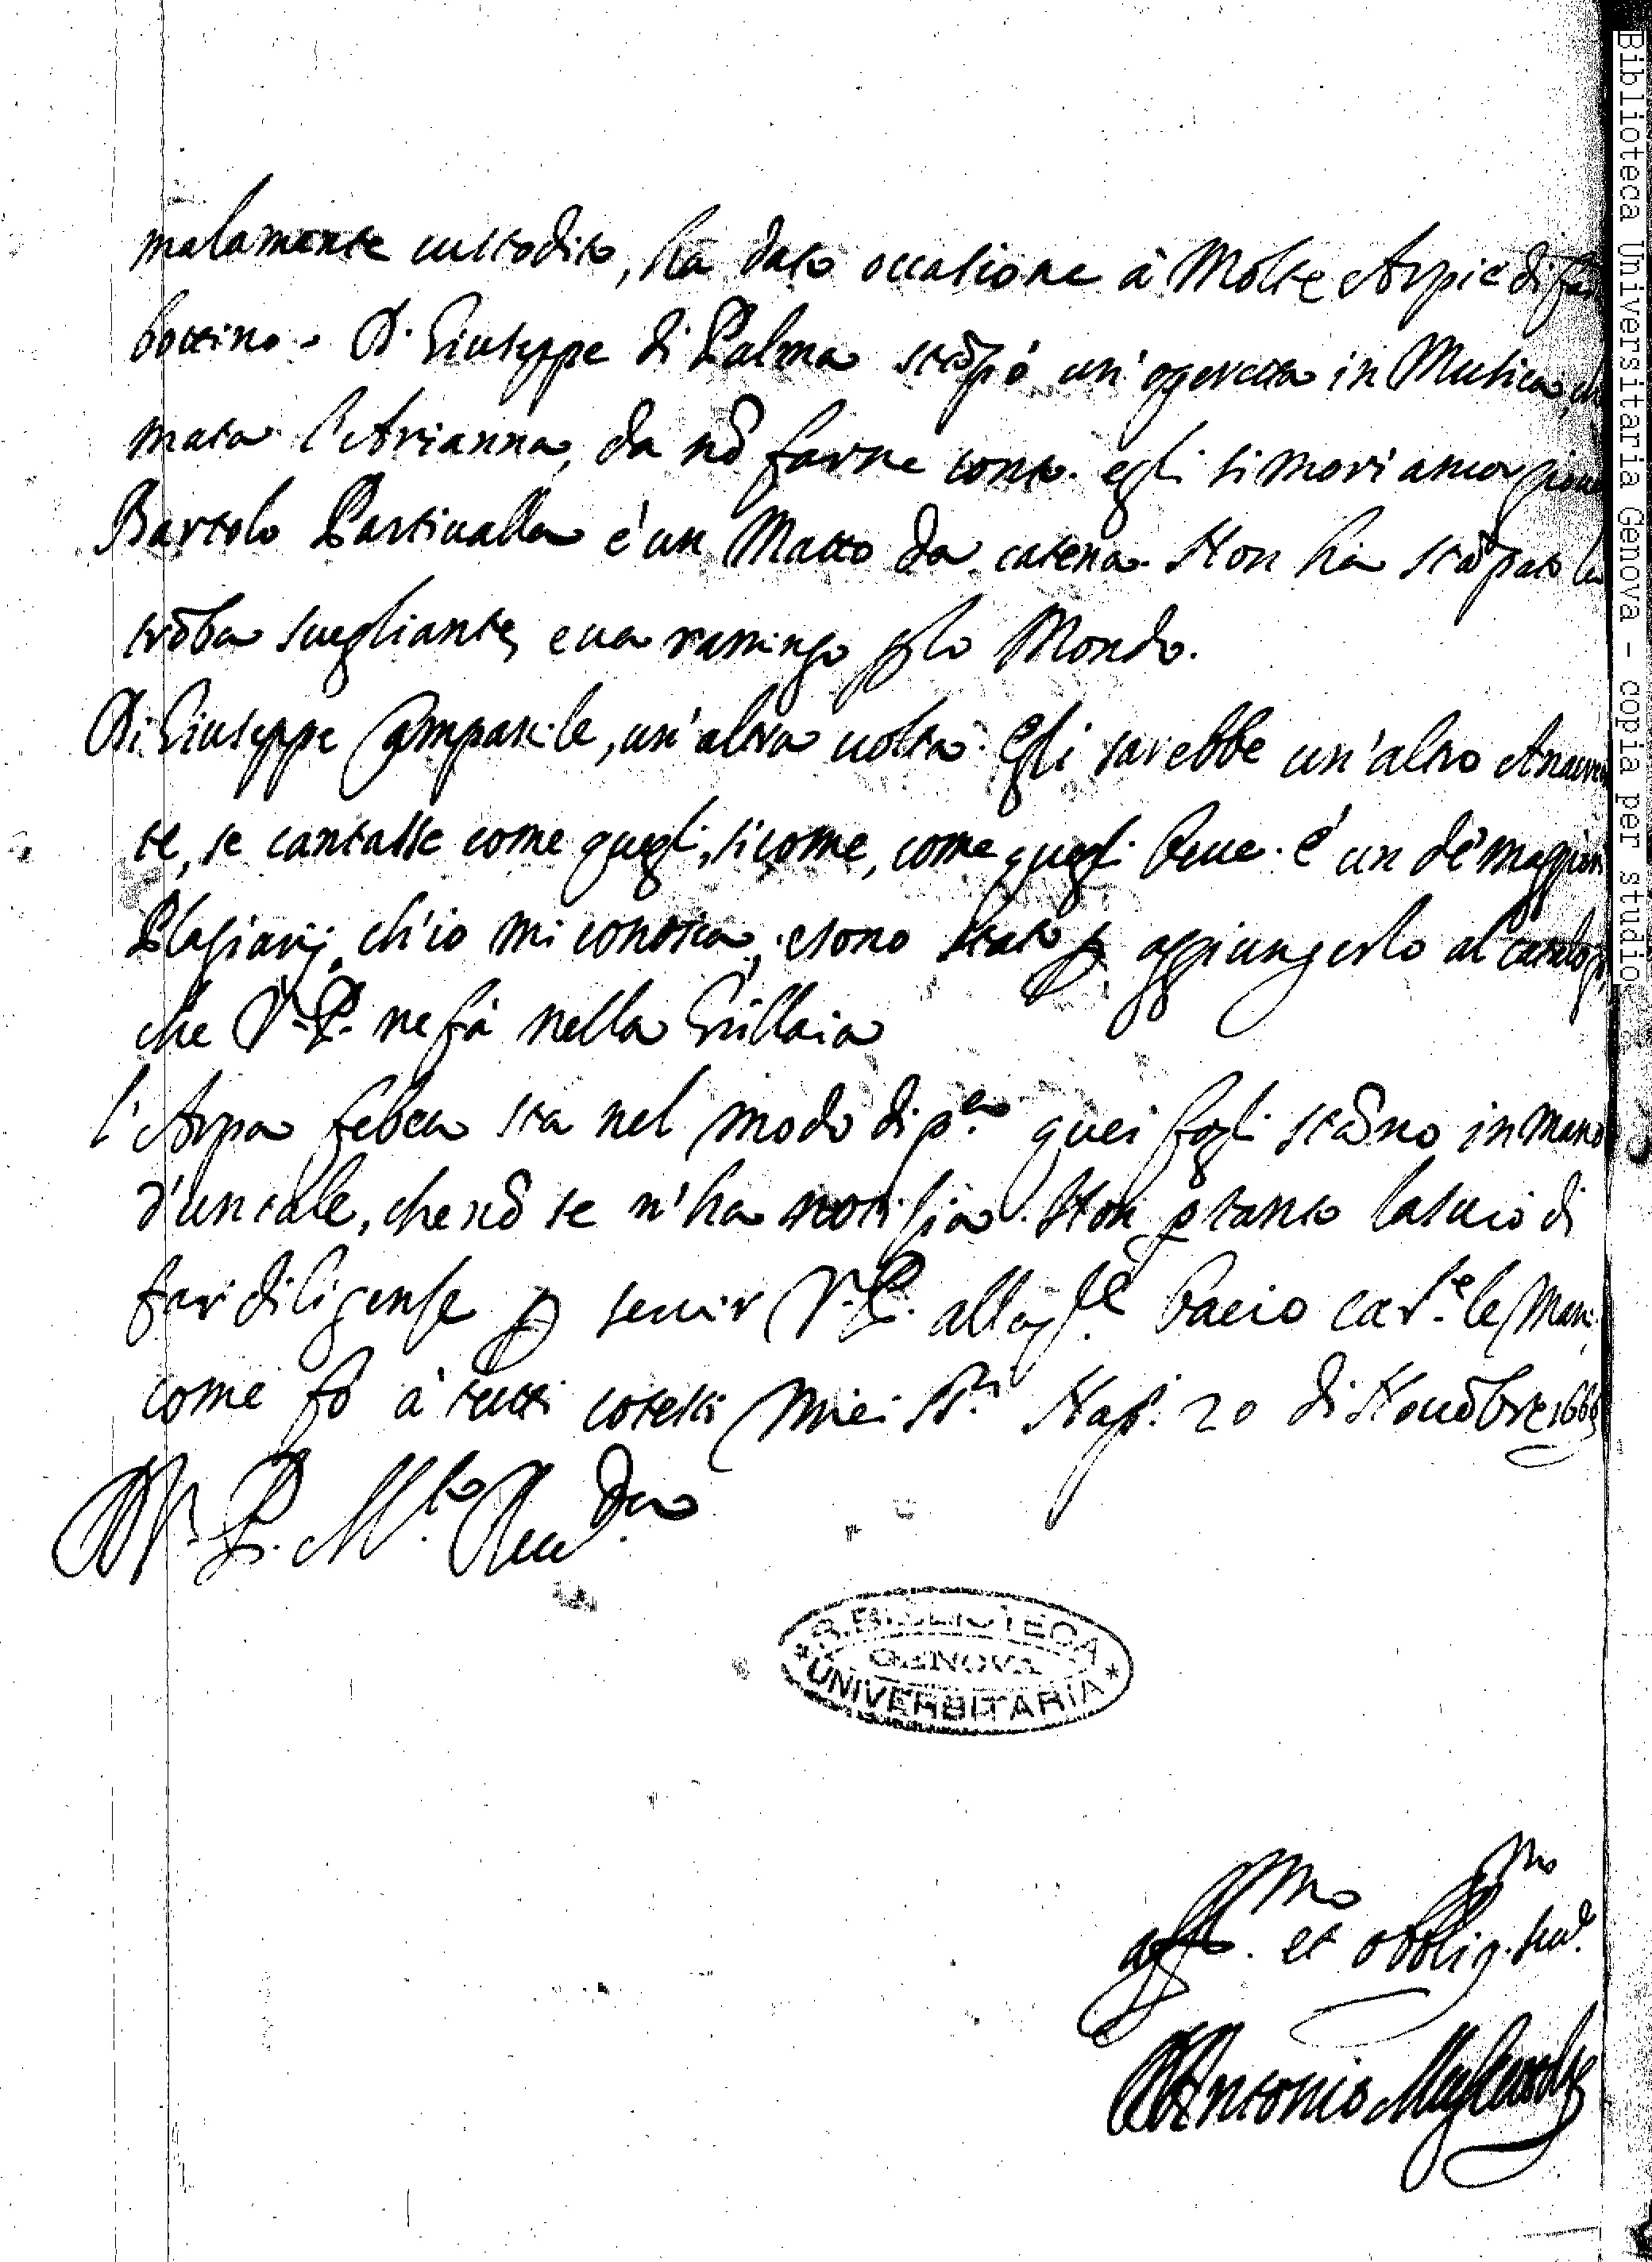 malamente custodito, ha dato occasione à Molte Arpie di far
bottino. D. Giuseppe di Palma stãpò un'operetta in Musica, chia
mata l'Arianna, da nõ farne conto. egli si morì ancor giouane
Bartolo Partiualla è un Matto da catena. Non ha stãpato la
trõba suegliante, e ua ramingo p lo Mondo.
Di Giuseppe Campanile, un'altra uolta. Egli sarebbe un'altro Anacreon
te, se cantasse come quegli, sicome, come quegli beue. è un de' maggiori
Plagiarij, ch'io mi conosca, e sono stato p aggiungerlo al catalogo,
che V. P. ne fà nella Grillaia
l'Arpa febea sta nel modo di p.ª quei fogli stãno in mano
d'un tale, che nõ se n'ha notisia. Non p tanto lascio di
far diligense p seruir V. P. alla q.le bacio car.te le mani,
come fò à tutti cotesti miei SS.ri Nap. 20 di Nouẽbre 166
D V. P. M.to Reu.da
R. BIBLIOTECA
GENOVA
UNIVERSITARIA
aff.mo et obblig.mo seru.
D Antonio Muscettola
Biblioteca Universitaria Genova - copia per studio